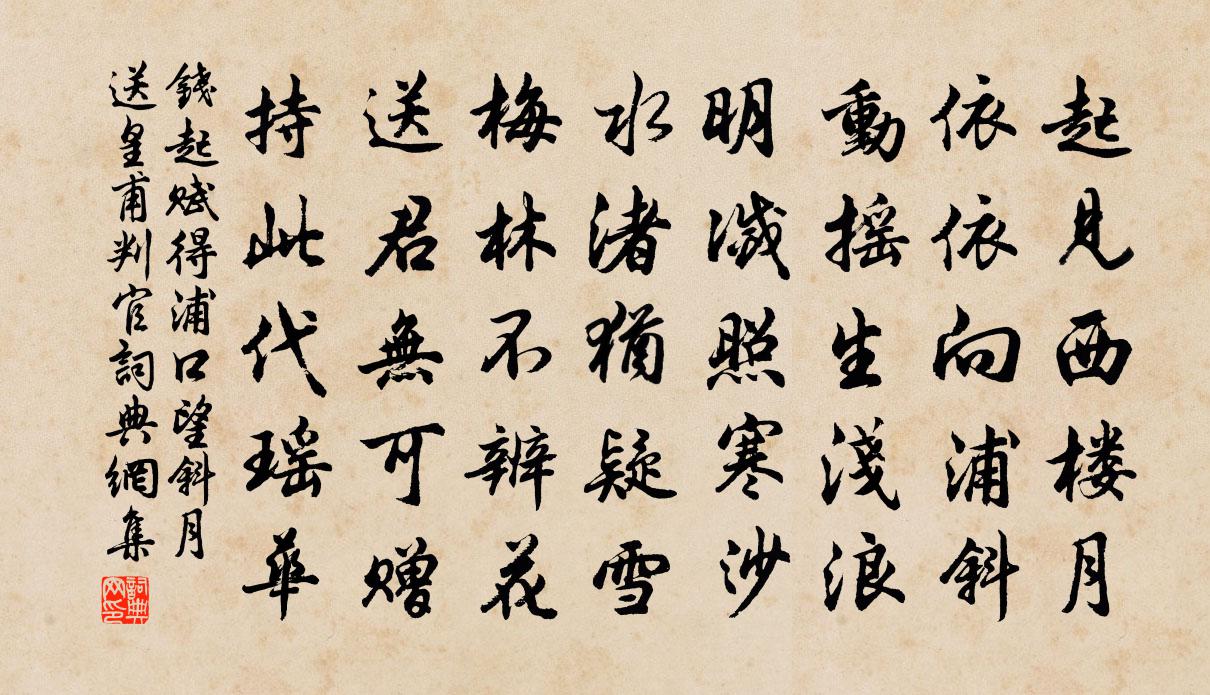 起見西楼月
依依向浦斜
動摇生淺浪
明滅照寒沙
水渚猶疑雪
梅林不辨花
送君無可贈
持此代瑶華
錢起賦得浦口望斜月
送皇甫判官詞典網集
詞典网印